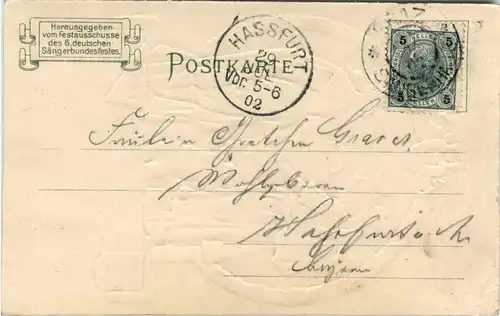 Herausgegeben
vom Festausschusse
des 6. deutschen
Sängerbundesfestes.
HASSFURT
29
JUL
Vor. 5-6
02
POSTKARTE
5 5
HELLER
5 5
Fräulein Gretchen
Wohlgeboren
Haßfurt a. M.
Bayern